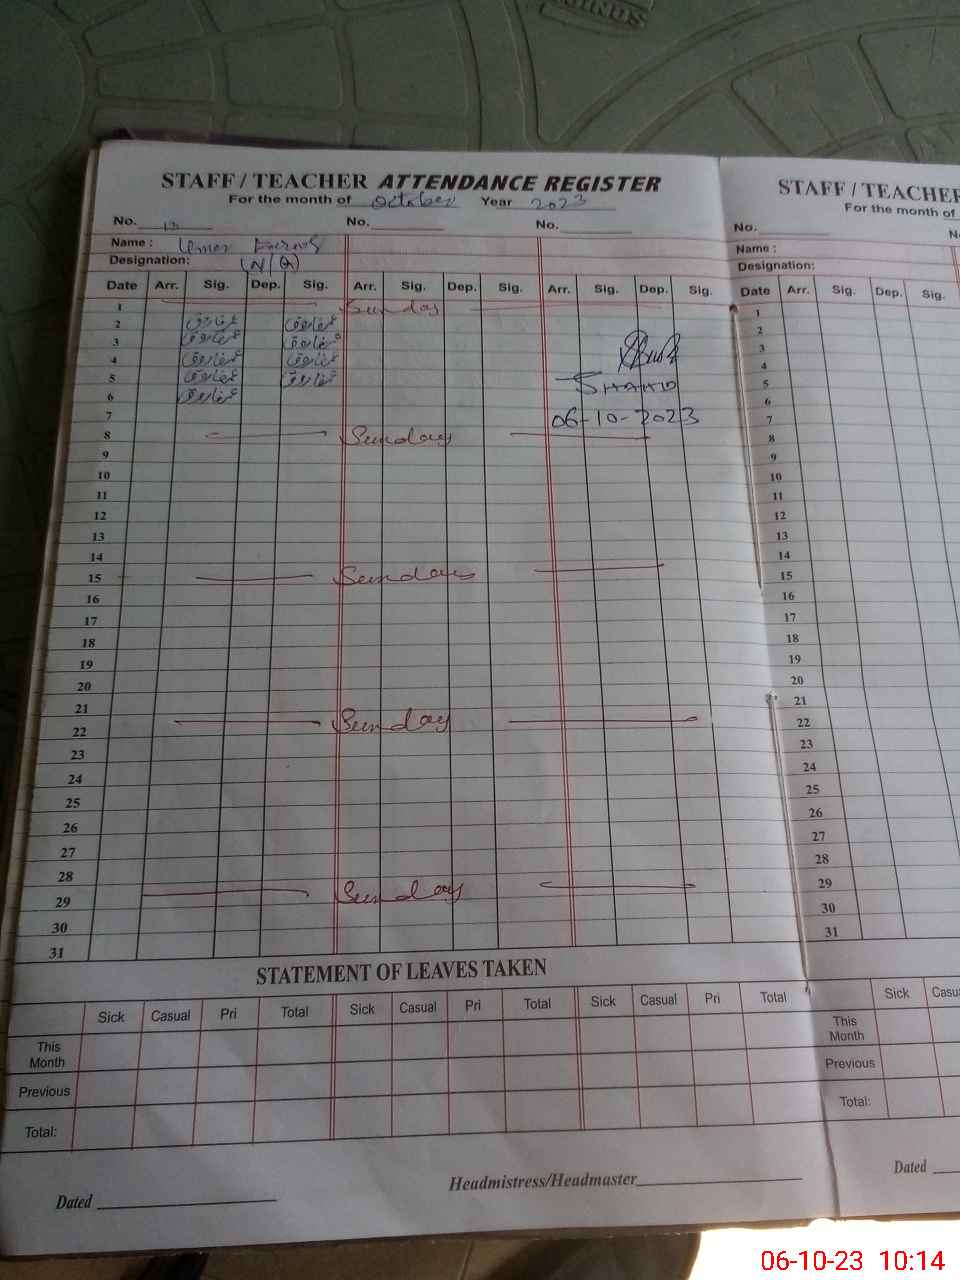 STAFF / TEACHER ATTENDANCE REGISTER
For the month of October Year 2023
No. 13 No. No.
Name : Umar Farooq
Designation: (N/Q)
Date Arr. Sig. Dep. Sig. Arr. Sig. Dep. Sig. Arr. Sig. Dep. Sig.
1 Sunday
2 عمرفاروق عمرفاروق
3 عمرفاروق عمرفاروق
4 عمرفاروق عمرفاروق
5 عمرفاروق عمرفاروق SHAHID
6 عمرفاروق
7 06-10-2023
8 Sunday
9
10
11
12
13
14
15 Sunday
16
17
18
19
20
21
22 Sunday
23
24
25
26
27
28
29 Sunday
30
31
STATEMENT OF LEAVES TAKEN
Sick Casual Pri Total Sick Casual Pri Total Sick Casual Pri Total
This Month
Previous
Total:
Dated Headmistress/Headmaster
STAFF / TEACHER
For the month of
No.
Name :
Designation:
Date Arr. Sig. Dep. Sig.
1
2
3
4
5
6
7
8
9
10
11
12
13
14
15
16
17
18
19
20
21
22
23
24
25
26
27
28
29
30
31
Sick
This Month
Previous
Total:
Dated
06-10-23 10:14